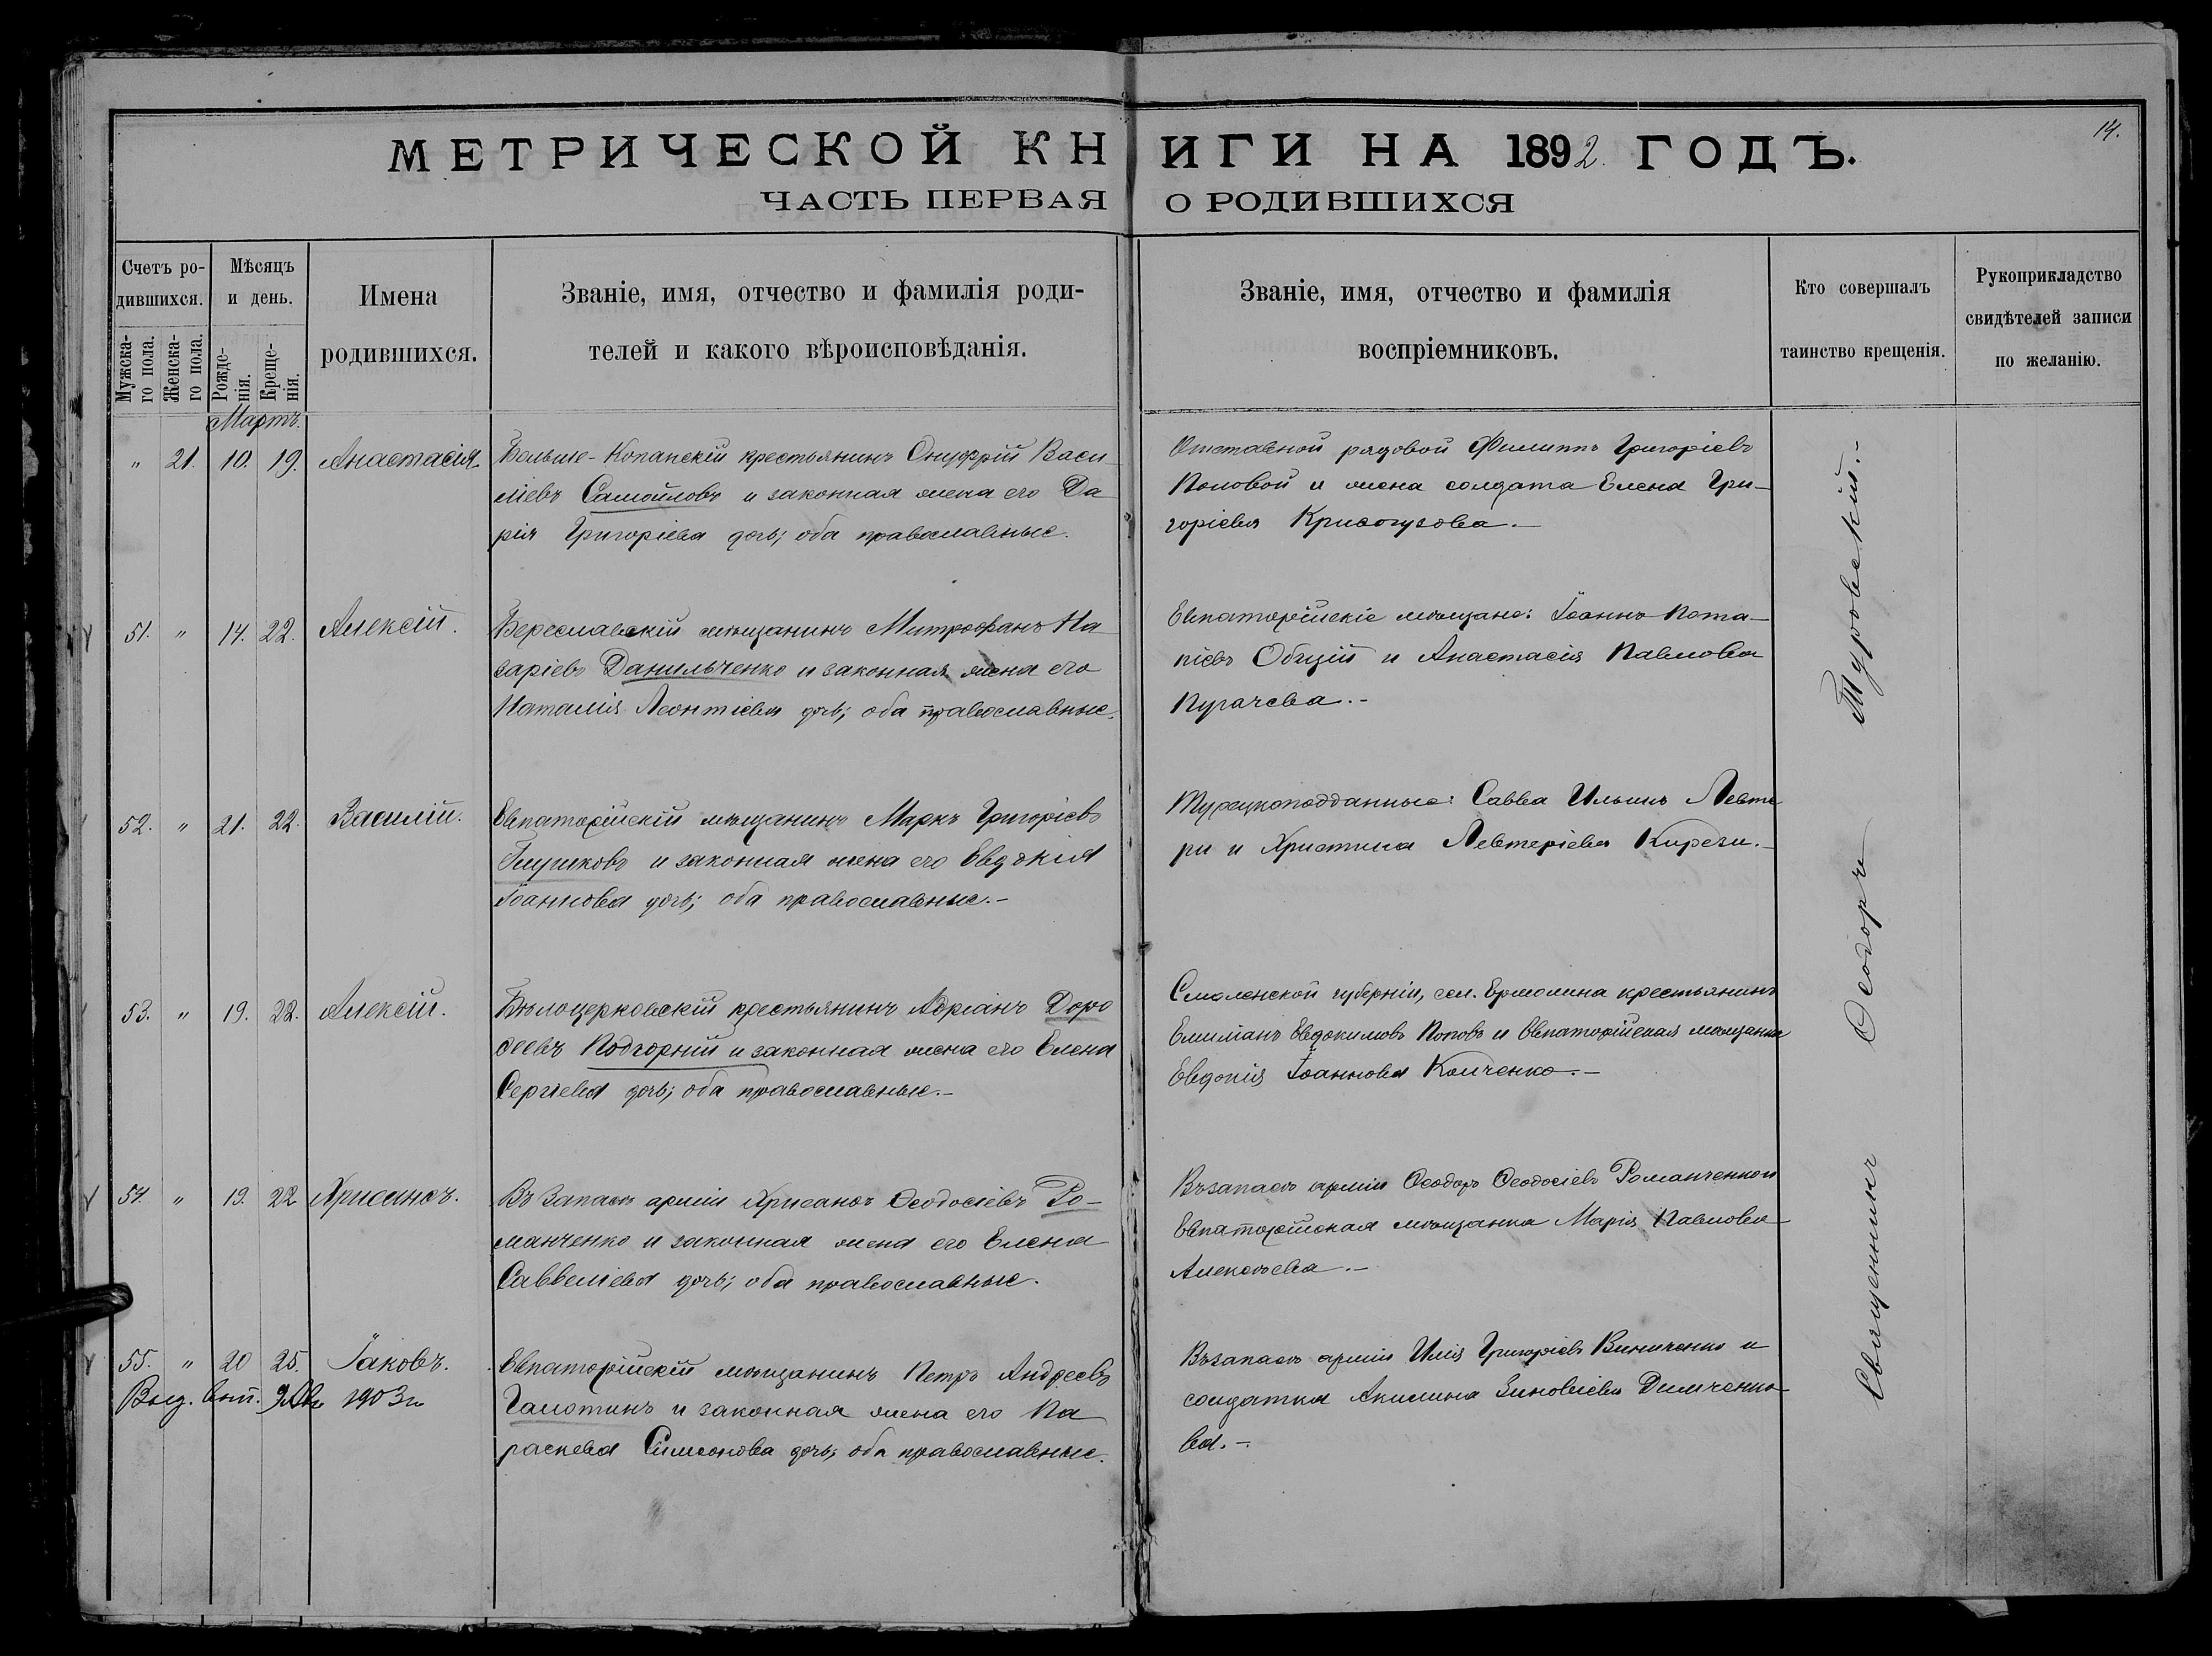 МЕТРИЧЕСКОЙ КНИГИ НА 1892 ГОДЪ.
14.
ЧАСТЬ ПЕРВАЯ О РОДИВШИХСЯ
Счетъ ро-
дившихся.
Мужска-
го пола.
Женска-
го пола.
Мѣсяцъ
и день.
Рожде-
нія.
Креще-
нія.
Имена
родившихся.
Званіе, имя, отчество и фамилія роди-
телей и какого вѣроисповѣданія.
Званіе, имя, отчество и фамилія
воспріемниковъ.
Кто совершалъ
таинство крещенія.
Рукоприкладство
свидѣтелей записи
по желанію.
Мартъ.
" 21. 10. 19. Анастасія.
Больше-Копанскій крестьянинъ Онуфрій Васи-
ліевъ Самойловъ и законная жена его Да
рія Григоріева дочь; оба православные.
Отставной рядовой Филиппъ Григоріевъ
Поповой и жена солдата Елена Гри-
горіева
51. " 14. 22. Алексій.
Береславскій мѣщанинъ Митрофанъ На
заріевъ Данильченко и законная жена его
Наталія Леонтіева дочь; оба православные.
Евпаторійскіе мѣщане: Іоаннъ Пота-
піевъ Общій и Анастасія Павлова
Пугачева.-
52. " 21. 22. Василій.
Евпаторійскій мѣщанинъ Маркъ Григоріевъ
Глушковъ и законная жена его Евдокія
Іоаннова дочь; оба православные.-
Турецкоподданные: Савва Ильинъ Левте
ри и Христина Левтеріева
53. " 19. 22. Алексій.
Бѣлоцерковскій крестьянинъ Адріанъ Доро
ѳеевъ Подгорній и законная жена его Елена
Сергіева дочь; оба православные.-
Смоленской губерніи, сел. Ермолина крестьянинъ
Емиліанъ Евдокимовъ Поповъ и Евпаторійская мѣщанка
Евдокія Іоаннова Колченко.-
54. " 19. 22 Хрисанѳъ.
Въ запасѣ арміи Хрисанѳъ Ѳеодосіевъ Ро-
манченко и законная жена его Елена
Саввеліева дочь; оба православные.
Въ запасѣ арміи Ѳеодоръ Ѳеодосіевъ Романченко и
Евпаторійская мѣщанка Марія Павлова
Алексѣева.-
55. " 20 25. Іаковъ.
Выд. 1903 г.
Евпаторійскій мѣщанинъ Петръ Андреевъ
Галотинъ и законная жена его Па
раскева Симеонова дочь; оба православные.
Въ запасѣ арміи Илія Григоріевъ Винниченко и
солдатка Акилина Зиновіева Демченко
ва.-
Священникъ Ѳеодоръ Туровскій.-